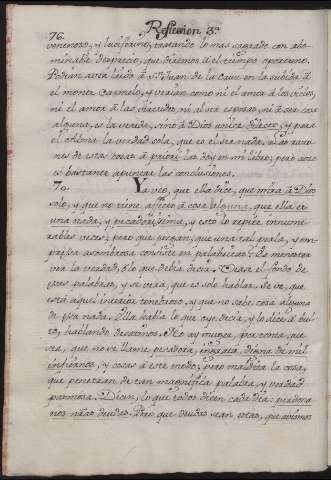 76.
Reflexion 3ª
venenosos, y luciferino, tratando lo mas sagrado con abo-
minable desprecio, que diremos a el tiempo oportuno.
Podian aver leido a Sn. Juan de la Cruz en la subida a
el monte Carmelo, y verian como ni el amor a los vicios,
ni el amor a las virtudes, ni al ser esposo, ni a ser cosa
alguna, es la vereda, sino a Dios, y para
el Alma la verdad sola, que es el ser nada. Las razo-
nes de estas cosas a priori las doy en mi libro; pero aora
es bastante apuntar las conclusiones.
70. Ya veo, que ella dice, que mira a Dios
solo, y que no tiene afecto a cosa alguna, que ella es
una nada, y pecadorissima, y esto lo repite innume-
rables veces; pero que juzgan, que una tal perla, y em-
pressa asombrosa consiste en palabricas? La menor era
ver la verdad, o lo que debia decir. Vease el fondo de
esas palabras, y se vera, que es solo hablar. Se ve, que
está aqui interior tenebroso, y que no sabe cosa alguna
de essa nada. Ella habla lo que oye decir, y lo dice a bul-
to, hablando desatinos. No ay muger, por tonta que
sea, que no se llame pecadora, ingrata, digna de mil
infiernos, y cosas a este modo; pero maldita la cosa,
que penetran de tan magnifica palabra, y verdad
pasmosa. Dicen, lo que todos dicen cada dia: perdona
nos nras deudas. Pero que deudas sean estas, que avemos